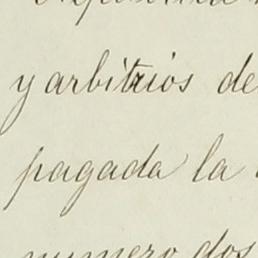 y arbitrios de
pagada la
numero dos